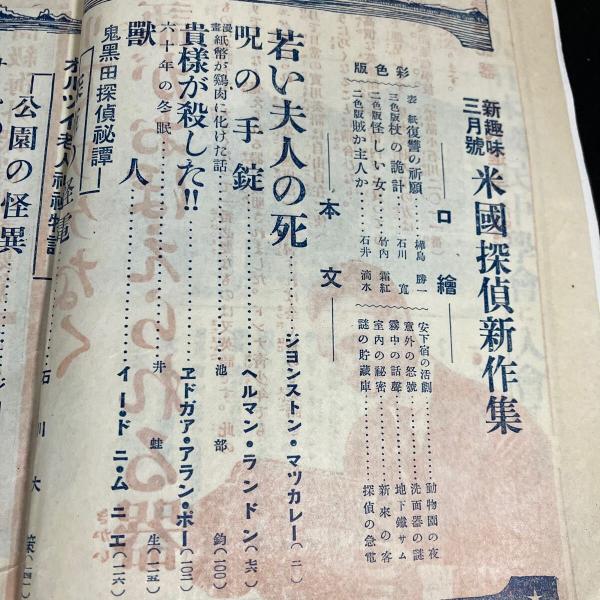 新趣味
三月號
米國探偵新作集
口繪
彩色版
表紙 復讐の祈願 樺島勝一
三色版 杖の詭計 石川寬
二色版 怪しい女 竹內霜紅
二色版 賊か主人か 石井滴水
安下宿の活劇 動物園の夜
意外の怒號 洗面器の謎
霧中の話聲 地下鐵サム
室內の秘密 新來の客
謎の貯藏庫 探偵の急電
本文
若い夫人の死 ジヨンストン・マツカレー(二)
呪の手錠 ヘルマン・ランドン(七六)
漫畫 紙幣が鷄肉に化けた話 池部鈞(一〇〇)
貴樣が殺した!! ヱドガア・アラン・ポー(一〇二)
六十年の冬眠 井蛙生(一一五)
獸人 イー・ドニ・ムニエ(一一六)
鬼黑田探偵祕譚
公園の怪異